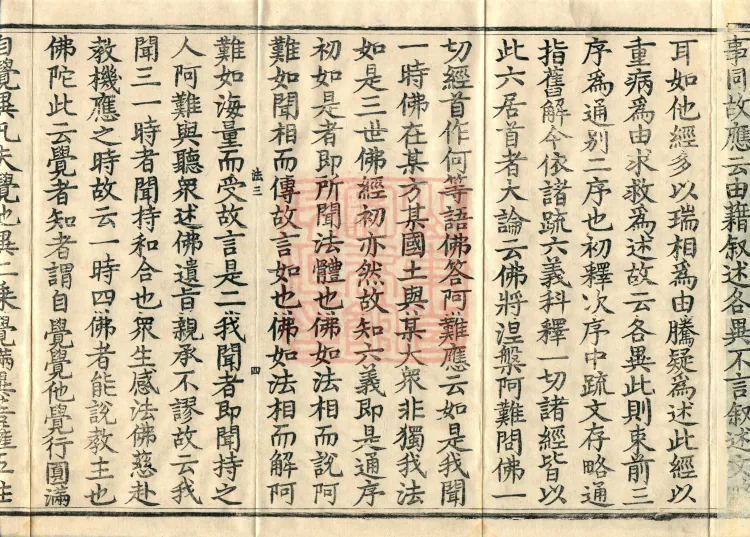 事同故應云由藉叙述各異不言叙述文
耳如他經多以瑞相為由騰疑為述此經以
重病為由求救為述故云各異此則束前三
序為通別二序也初釋次序中疏文存略通
指舊解今依諸疏六義科釋一切諸經皆以
此六居首者大論云佛將涅槃阿難問佛一
切經首作何等語佛答阿難應云如是我聞
一時佛在某方某國土與某大衆非獨我法
如是三世佛經初亦然故知六義即是通序
初如是者即所聞法體也佛如法相而說阿
難如聞相而傳故言如也佛如法相而解阿
法三
四
難如海量而受故言是二我聞者即聞持之
人阿難與聽衆述佛遺旨親承不謬故云我
聞三一時者聞持和合也衆生感法佛慈赴
教機應之時故云一時四佛者能說教主也
佛陀此云覺者知者謂自覺覺他覺行圓滿
自覺異凡夫覺他異二乘覺滿異菩薩五住